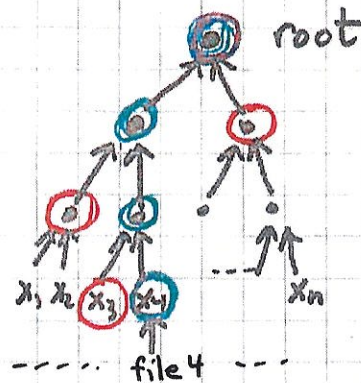 root
x₁ x₂ x₃ x₄ xₙ
file 4